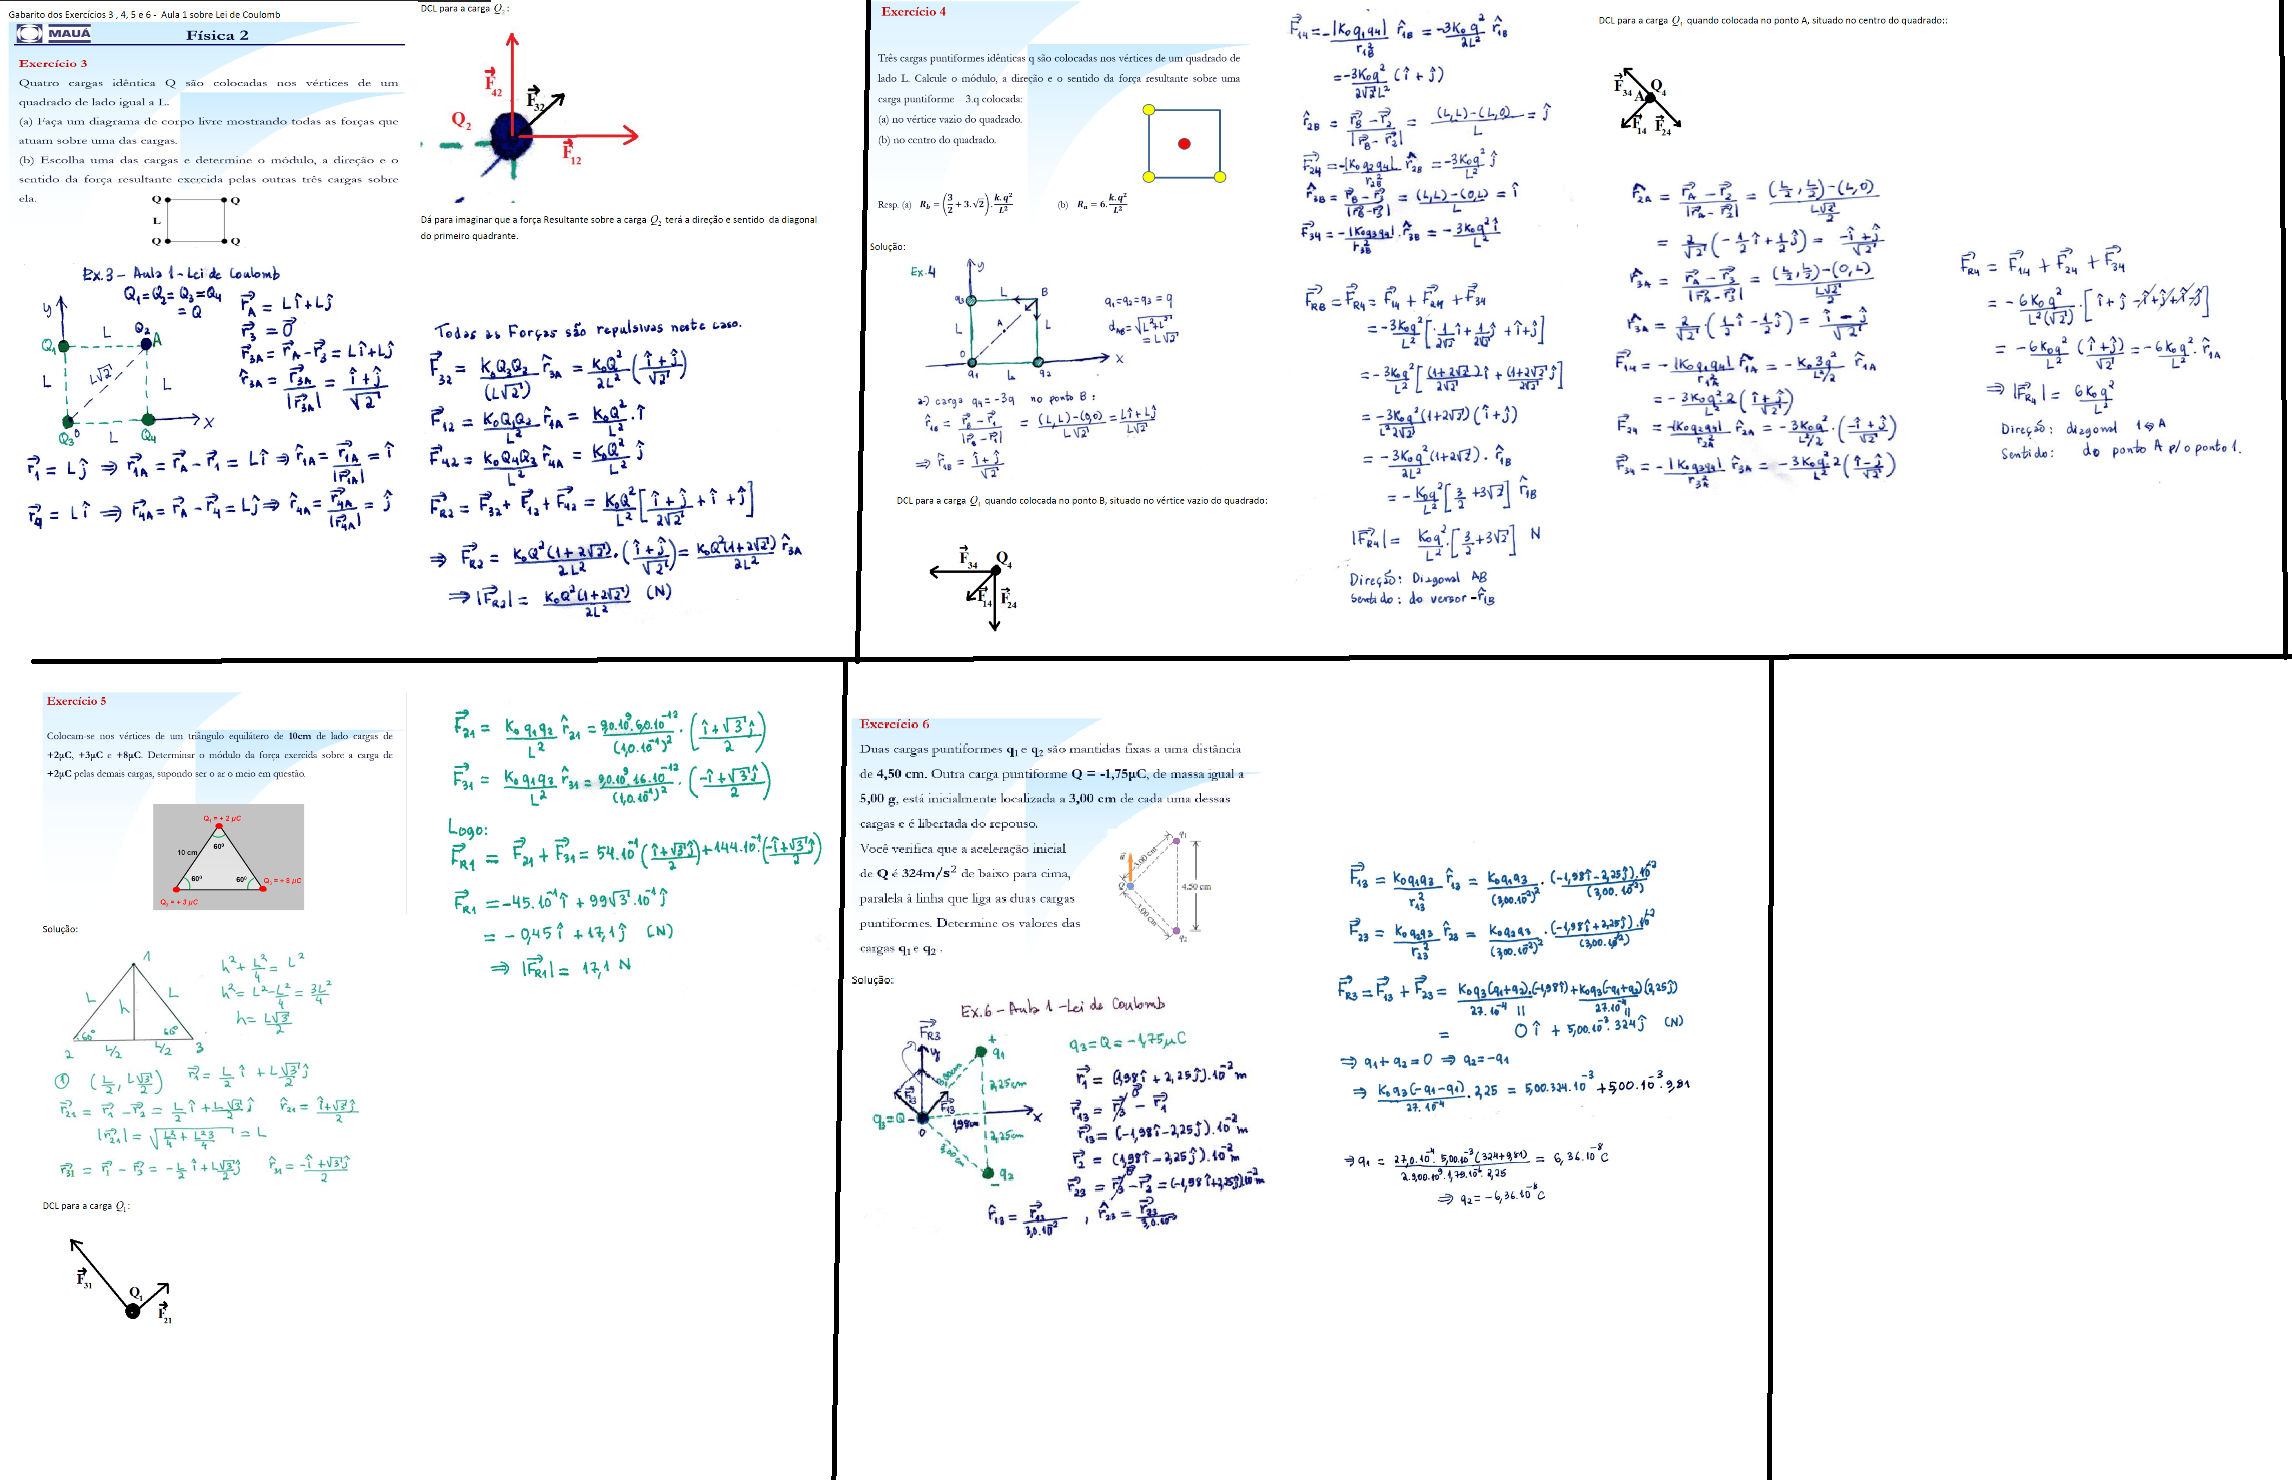 Gabarito dos Exercícios 3 , 4, 5 e 6 - Aula 1 sobre Lei de Coulomb
MAUÁ
Física 2
Exercício 3
Quatro cargas idêntica Q são colocadas nos vértices de um
quadrado de lado igual a L.
(a) Faça um diagrama de corpo livre mostrando todas as forças que
atuam sobre uma das cargas.
(b) Escolha uma das cargas e determine o módulo, a direção e o
sentido da força resultante exercida pelas outras três cargas sobre
ela.
Q Q
L
Q Q
Ex.3 - Aula 1 - Lei de Coulomb
Q₁=Q₂=Q₃=Q₄
=Q
r⃗_A = Lî+Lĵ
r⃗₃ = 0⃗
r⃗₃A = r⃗_A - r⃗₃ = Lî+Lĵ
r̂₃A = r⃗₃A/|r⃗₃A| = (î+ĵ)/√2
y
L
Q₂
Q₁
A
L
L√2
L
Q₃
0
L
Q₄
x
r⃗₁ = Lĵ ⇒ r⃗₁A = r⃗_A - r⃗₁ = Lî ⇒ r̂₁A = r⃗₁A/|r⃗₁A| = î
r⃗₄ = Lî ⇒ r⃗₄A = r⃗_A - r⃗₄ = Lĵ ⇒ r̂₄A = r⃗₄A/|r⃗₄A| = ĵ
DCL para a carga Q₂ :
F⃗₄₂
F⃗₃₂
Q₂
F⃗₁₂
Dá para imaginar que a força Resultante sobre a carga Q₂ terá a direção e sentido da diagonal
do primeiro quadrante.
Todas as Forças são repulsivas neste caso.
F⃗₃₂ = K₀Q₃Q₂/(L√2) r̂₃A = K₀Q²/2L² ((î+ĵ)/√2)
F⃗₁₂ = K₀Q₁Q₂/L² r̂₁A = K₀Q²/L² . î
F⃗₄₂ = K₀Q₄Q₂/L² r̂₄A = K₀Q²/L² ĵ
F⃗R₂ = F⃗₃₂ + F⃗₁₂ + F⃗₄₂ = K₀Q²/L² [(î+ĵ)/2√2 + î + ĵ]
⇒ F⃗R₂ = K₀Q²(1+2√2)/2L² . ((î+ĵ)/√2) = K₀Q²(1+2√2)/2L² r̂₃A
⇒ |F⃗R₂| = K₀Q²(1+2√2)/2L² (N)
Exercício 4
Três cargas puntiformes idênticas q são colocadas nos vértices de um quadrado de
lado L. Calcule o módulo, a direção e o sentido da força resultante sobre uma
carga puntiforme 3.q colocada:
(a) no vértice vazio do quadrado.
(b) no centro do quadrado.
Resp. (a) R_b = (3/2 + 3.√2).k.q²/L² (b) R_a = 6.k.q²/L²
Solução:
Ex.4
y
q₃
L
B
A
L
L
0
q₁
L
q₂
x
q₁=q₂=q₃=q
d_AB=√(L²+L²)
=L√2
a-) carga q₄=-3q no ponto B:
r̂₁B = (r⃗_B - r⃗₁)/|r⃗_B - r⃗₁| = ((L,L)-(0,0))/L√2 = (Lî+Lĵ)/L√2
⇒ r̂₁B = (î+ĵ)/√2
DCL para a carga Q₄ quando colocada no ponto B, situado no vértice vazio do quadrado:
F⃗₃₄
Q₄
F⃗₁₄
F⃗₂₄
F⃗₁₄ = -|K₀q₁q₄|/r₁B² r̂₁B = -3K₀q²/2L² r̂₁B
= -3K₀q²/2√2L² (î+ĵ)
r̂₂B = (r⃗_B - r⃗₂)/|r⃗_B - r⃗₂| = ((L,L)-(L,0))/L = ĵ
F⃗₂₄ = -|K₀q₂q₄|/r₂B² r̂₂B = -3K₀q²/L² ĵ
r̂₃B = (r⃗_B - r⃗₃)/|r⃗_B - r⃗₃| = ((L,L)-(0,L))/L = î
F⃗₃₄ = -|K₀q₃q₄|/r₃B² . r̂₃B = -3K₀q² î/L²
F⃗RB = F⃗R₄ = F⃗₁₄ + F⃗₂₄ + F⃗₃₄
= -3K₀q²/L² [1/2√2 î + 1/2√2 ĵ + î + ĵ]
= -3K₀q²/L² [(1+2√2)/2√2 î + (1+2√2)/2√2 ĵ]
= -3K₀q²(1+2√2)/L²2√2 (î+ĵ)
= -3K₀q²(1+2√2)/2L² . r̂₁B
= -K₀q²/L² [3/2 + 3√2] r̂₁B
|F⃗R₄| = K₀q²/L² . [3/2 + 3√2] N
Direção: Diagonal AB
Sentido: do versor -r̂₁B
DCL para a carga Q₄ quando colocada no ponto A, situado no centro do quadrado::
F⃗₃₄
A
Q₄
F⃗₁₄
F⃗₂₄
r̂₂A = (r⃗_A - r⃗₂)/|r⃗_A - r⃗₂| = ((L/2, L/2)-(L,0))/(L√2/2)
= 2/√2 (-1/2 î + 1/2 ĵ) = (-î+ĵ)/√2
r̂₃A = (r⃗_A - r⃗₃)/|r⃗_A - r⃗₃| = ((L/2, L/2)-(0,L))/(L√2/2)
r̂₃A = 2/√2 . (1/2 î - 1/2 ĵ) = (î-ĵ)/√2
F⃗₁₄ = -|K₀q₁q₄|/r₁A² r̂₁A = -K₀3q²/(L²/2) r̂₁A
= -3K₀q².2/L² ((î+ĵ)/√2)
F⃗₂₄ = -|K₀q₂q₄|/r₂A² r̂₂A = -3K₀q²/(L²/2) . ((-î+ĵ)/√2)
F⃗₃₄ = -|K₀q₃q₄|/r₃A² r̂₃A = -3K₀q²2/L² ((î-ĵ)/√2)
F⃗R₄ = F⃗₁₄ + F⃗₂₄ + F⃗₃₄
= -6K₀q²/L²(√2) . [î+ĵ-î+ĵ+î-ĵ]
= -6K₀q²/L² (î+ĵ)/√2 = -6K₀q²/L² . r̂₁A
⇒ |F⃗R₄| = 6K₀q²/L²
Direção: diagonal 1⇔A
Sentido: do ponto A p/ o ponto 1.
Exercício 5
Colocam-se nos vértices de um triângulo equilátero de 10cm de lado cargas de
+2µC, +3µC e +8µC. Determinar o módulo da força exercida sobre a carga de
+2µC pelas demais cargas, supondo ser o ar o meio em questão.
Q₁ = + 2 µC
60º
10 cm
60º
60º
Q₃ = + 8 µC
Q₂ = + 3 µC
Solução:
1
L
h
L
60°
60°
2
L/2
L/2
3
h² + L²/4 = L²
h² = L² - L²/4 = 3L²/4
h = L√3/2
① (L/2, L√3/2) r⃗₁ = L/2 î + L√3/2 ĵ
r⃗₂₁ = r⃗₁ - r⃗₂ = L/2 î + L√3/2 ĵ r̂₂₁ = (î+√3ĵ)/2
|r⃗₂₁| = √(L²/4 + L²3/4) = L
r⃗₃₁ = r⃗₁ - r⃗₃ = -L/2 î + L√3/2 ĵ r̂₃₁ = (-î+√3ĵ)/2
DCL para a carga Q₁ :
F⃗₃₁
Q₁
F⃗₂₁
F⃗₂₁ = K₀q₁q₂/L² r̂₂₁ = 9,0.10⁹.6,0.10⁻¹²/(1,0.10⁻¹)² . ((î+√3ĵ)/2)
F⃗₃₁ = K₀q₁q₃/L² r̂₃₁ = 9,0.10⁹.16.10⁻¹²/(1,0.10⁻¹)² . ((-î+√3ĵ)/2)
Logo:
F⃗R₁ = F⃗₂₁ + F⃗₃₁ = 54.10⁻¹ ((î+√3ĵ)/2) + 144.10⁻¹.((-î+√3ĵ)/2)
F⃗R₁ = -45.10⁻¹ î + 99√3.10⁻¹ ĵ
= -0,45 î + 17,1 ĵ (N)
⇒ |F⃗R₁| = 17,1 N
Exercício 6
Duas cargas puntiformes q₁ e q₂ são mantidas fixas a uma distância
de 4,50 cm. Outra carga puntiforme Q = -1,75µC, de massa igual a
5,00 g, está inicialmente localizada a 3,00 cm de cada uma dessas
cargas e é libertada do repouso.
Você verifica que a aceleração inicial
de Q é 324m/s² de baixo para cima,
paralela à linha que liga as duas cargas
puntiformes. Determine os valores das
cargas q₁ e q₂ .
q₁
3,00 cm
4,50 cm
3,00 cm
q₂
Solução:
Ex.6 - Aula 1 - Lei de Coulomb
F⃗R3
y
+
q₁
3,00cm
2,25cm
F⃗₁₃
q₃=Q
0
1,98cm
x
2,25cm
3,00cm
-
q₂
q₃=Q=-1,75µC
r⃗₁ = (1,98î + 2,25ĵ).10⁻² m
r⃗₁₃ = r⃗₃ - r⃗₁
r⃗₁₃ = (-1,98î-2,25ĵ).10⁻² m
r⃗₂ = (1,98î-2,25ĵ).10⁻² m
r⃗₂₃ = r⃗₃ - r⃗₂ = (-1,98î+2,25ĵ).10⁻² m
r̂₁₃ = r⃗₁₃/3,0.10⁻² , r̂₂₃ = r⃗₂₃/3,0.10⁻²
F⃗₁₃ = K₀q₁q₃/r₁₃² r̂₁₃ = K₀q₁q₃/(3,00.10⁻²)² . (-1,98î-2,25ĵ).10⁻²/(3,00.10⁻²)
F⃗₂₃ = K₀q₂q₃/r₂₃² r̂₂₃ = K₀q₂q₃/(3,00.10⁻²)² . (-1,98î+2,25ĵ).10⁻²/(3,00.10⁻²)
F⃗R3 = F⃗₁₃ + F⃗₂₃ = K₀q₃(q₁+q₂).(-1,98î)/27.10⁻⁴ + K₀q₃(-q₁+q₂)(2,25ĵ)/27.10⁻⁴
= 0î + 5,00.10⁻³.324ĵ (N)
⇒ q₁+q₂=0 ⇒ q₂=-q₁
⇒ K₀q₃(-q₁-q₁)/27.10⁻⁴ . 2,25 = 5,00.324.10⁻³ + 5,00.10⁻³.9,81
⇒ q₁ = 27,0.10⁻⁴.5,00.10⁻³(324+9,81)/2.9,00.10⁹.1,75.10⁻⁶.2,25 = 6,36.10⁻⁸C
⇒ q₂ = -6,36.10⁻⁸C